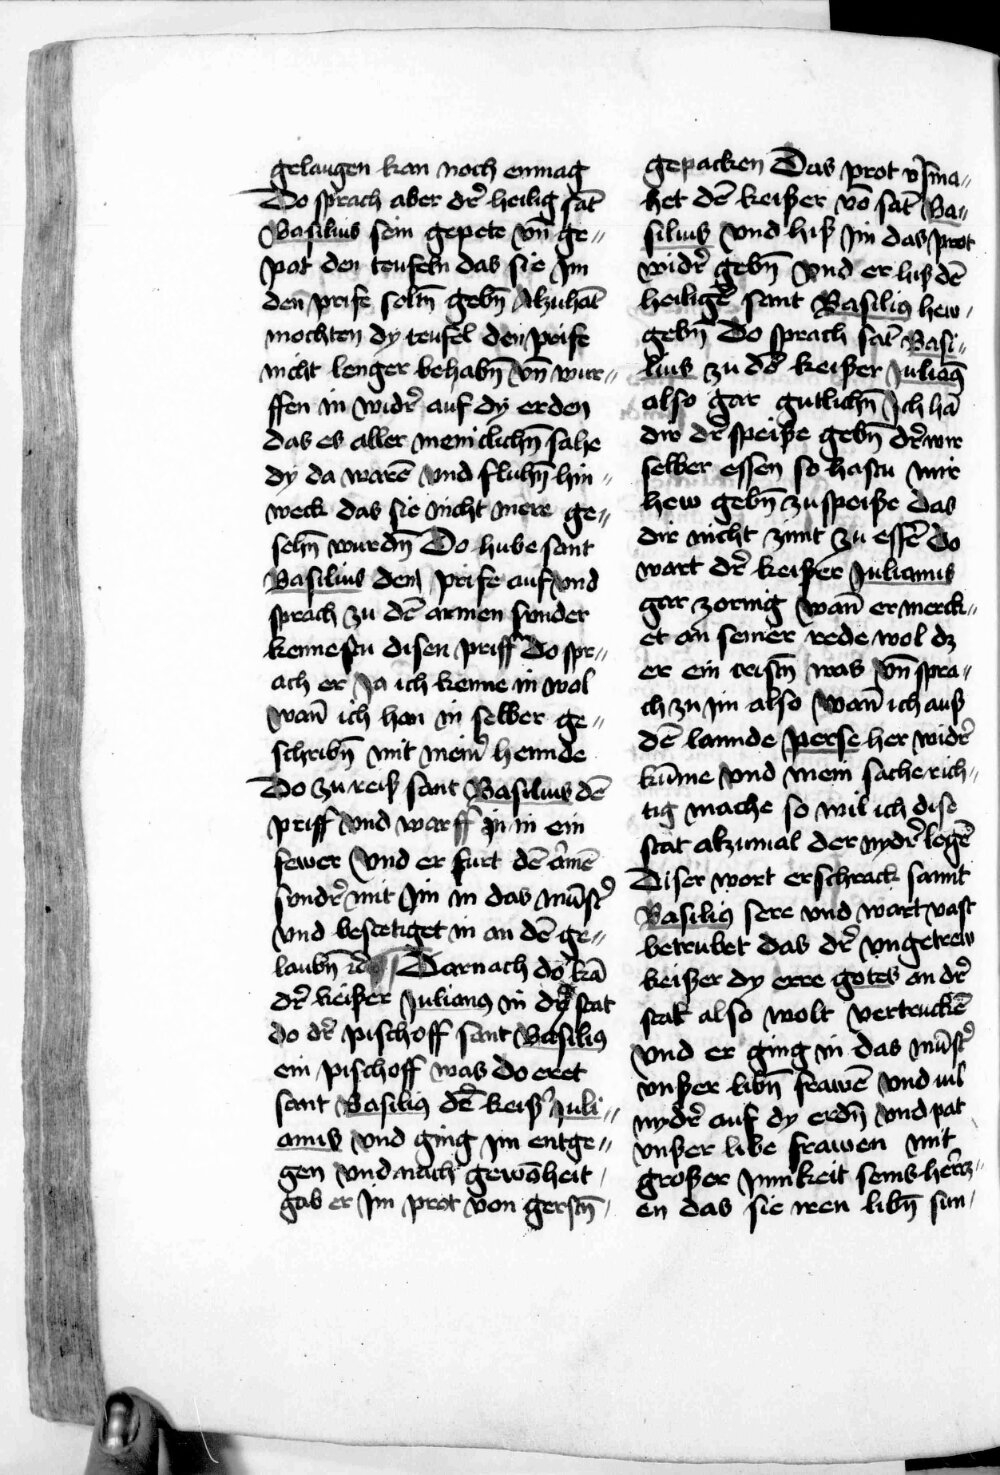 gelangen kan noch enmag
Do sprach aber dr̄ heilig sāt
Basilius sein gepete vn̄ ge〃
pot den teufeln das sie jm
den prife soltn̄ gebn̄ Alzuhāt
mochten dy teufel den prife
nicht lenger behabn̄ vn̄ wur〃
ffen in widr̄ auf dy erden
das es aller meniclichn̄ sahe
dy da warē vnd fluhn̄ hin〃
weck das sie nicht mere ge〃
sehn̄ wurdn̄ Do hube sant
Basilius den prife auf vnd
sprach zu dē armen sunder
kennestu disen priff Do spr〃
ach er Ja ich kenne in wol
wan̄ ich han in selber ge〃
schribn̄ mit meinr̄ hennde
Do zu reiß sant Basilius dē
priff vnd warff jn in ein
fewer Vnd er furt dē armē
sundr̄ mit jm in das mūstr̄
vnd bestetiget in an dē ge〃
laubn̄ Darnach do kā
dr̄ keißer Julianꝰ in dy stat
do dr̄ pischoff sant Basiliꝰ
ein pischoff was do eret
sant Basiliꝰ dē keisr̄ Juli〃
anus vnd ging jm entge〃
gen vnd nach gewōheit
gab er jm prot von gerstn̄
gepacken Das prot vsma〃
het dē keißer vō sāt Ba〃
silius vnd hiß jm das prot
widr̄ gebn̄ vnd er liß dē
heiligē sant Basiliꝰ hew
gebn̄ Do sprach sāt Basi〃
lius zu dē keißer Julianꝰ
also gar gutlichn̄ Ich hā
dir dr̄ speiße gebn̄ dr̄ wir
selber essen so hastu mir
hew gebn̄ zu speiße das
dir nicht zimt zu essē do
wart dr̄ keißer Julianus
gar zornig wan̄ er merck〃
et an seiner rede wol dz
er ein cristn̄ was vn̄ spra〃
ch zu jm also wan̄ ich auß
dē lannde Perse her widr̄
kūme vnd mein sache rich〃
tig mache so wil ich dise
stat alzumal der nydr̄ legē
Diser wort erschrack sannt
Basiliꝰ sere vnd wart vast
betrubet das dr̄ vngetrew
keißer dy erre gotes an dr̄
stat also wolt vertruckē
vnd er ging in das mūstr̄
vnßer libn̄ frawē vnd vil
nydr̄ auf dy erdn̄ vnd pat
vnßer libe frawen mit
großer jnnikeit seins hercz〃
en das sie iren libn̄ sun